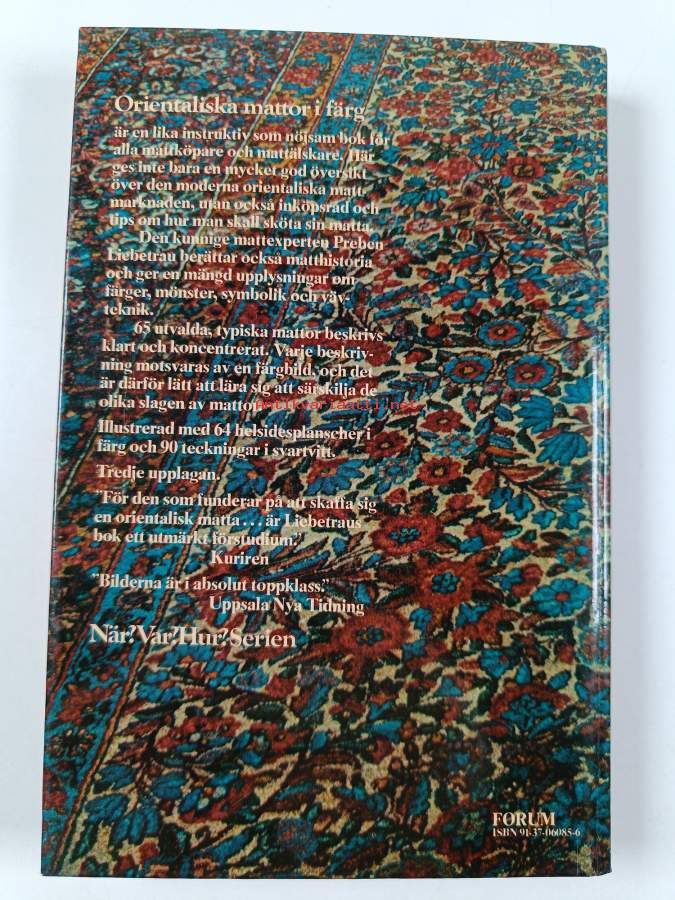 Orientaliska mattor i färg
är en lika instruktiv som nöjsam bok för
alla mattköpare och mattälskare. Här
ges inte bara en mycket god översikt
över den moderna orientaliska matt-
marknaden, utan också inköpsråd och
tips om hur man skall sköta sin matta.
Den kunnige mattexperten Preben
Liebetrau berättar också matthistoria
och ger en mängd upplysningar om
färger, mönster, symbolik och väv-
teknik.
65 utvalda, typiska mattor beskrivs
klart och koncentrerat. Varje beskriv-
ning motsvaras av en färgbild, och det
är därför lätt att lära sig att särskilja de
olika slagen av mattor.
Antikvariaatti.net
Illustrerad med 64 helsidesplanscher i
färg och 90 teckningar i svartvitt.
Tredje upplagan.
"För den som funderar på att skaffa sig
en orientalisk matta ... är Liebetraus
bok ett utmärkt förstudium."
Kuriren
"Bilderna är i absolut toppklass."
Uppsala Nya Tidning
När?Var?Hur?Serien
FORUM
ISBN 91-37-06085-6